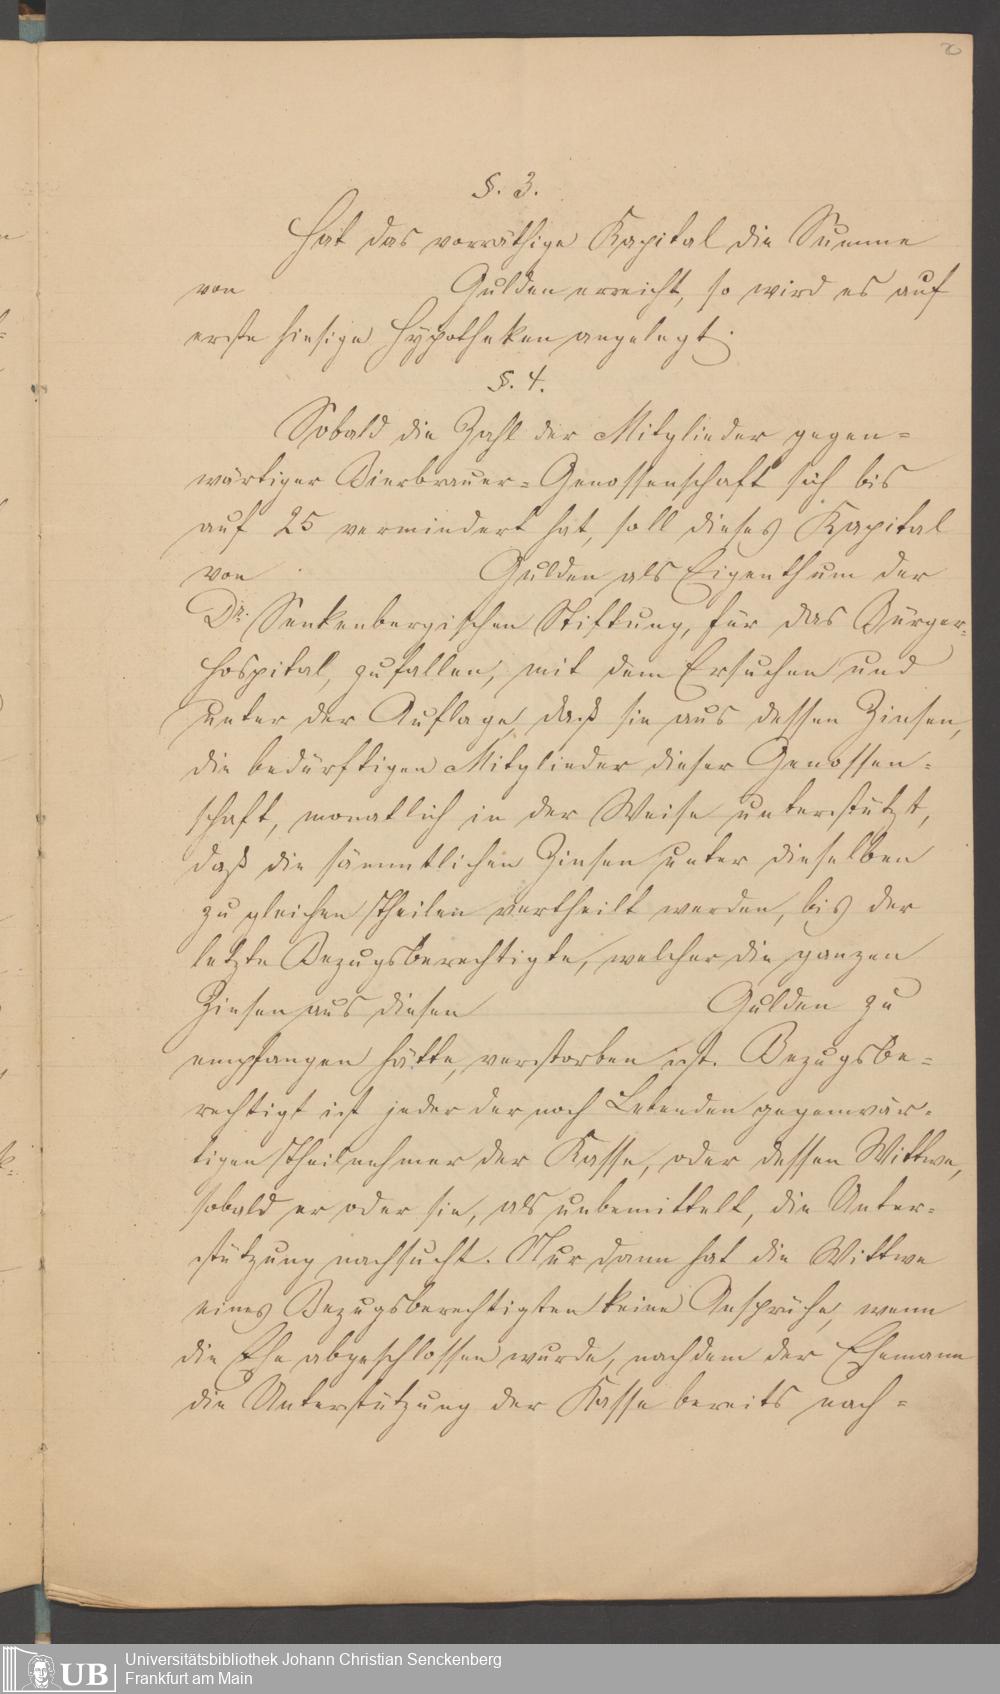 §. 3.
Hat das vorräthige Kapital die Summe
von Gulden erreicht, so wird es auf
erste hiesige Hypotheken angelegt.
§. 4.
Sobald die Zahl der Mitglieder gegen=
wärtiger Bierbrauer=Genossenschaft sich bis
auf 25 vermindert hat, soll dieses Kapital
von Gulden als Eigenthum der
Dr. Senkenbergischen Stiftung, für das Bürger=
hospital, zufallen, mit dem Ersuchen und
unter der Auflage, daß sie aus dessen Zinsen,
die bedürftigen Mitglieder dieser Genossen=
schaft, monatlich in der Weise unterstützt,
daß die sämmtlichen Zinsen unter dieselben
zu gleichen Theilen vertheilt werden, bis der
letzte Bezugsberechtigte, welcher die ganzen
Zinsen aus diesen Gulden zu
empfangen hätte, verstorben ist. Bezugsbe=
rechtigt ist jeder der noch Lebenden gegenwär=
tigen Theilnehmer der Kasse, oder dessen Wittwe,
sobald er oder sie, als unbemittelt, die Unter=
stützung nachsucht. Nur dann hat die Wittwe
eines Bezugsberechtigten keine Ansprüche, wenn
die Ehe abgeschlossen wurde, nachdem der Ehemann
die Unterstützung der Kasse bereits nach=
UB
Universitätsbibliothek Johann Christian Senckenberg
Frankfurt am Main